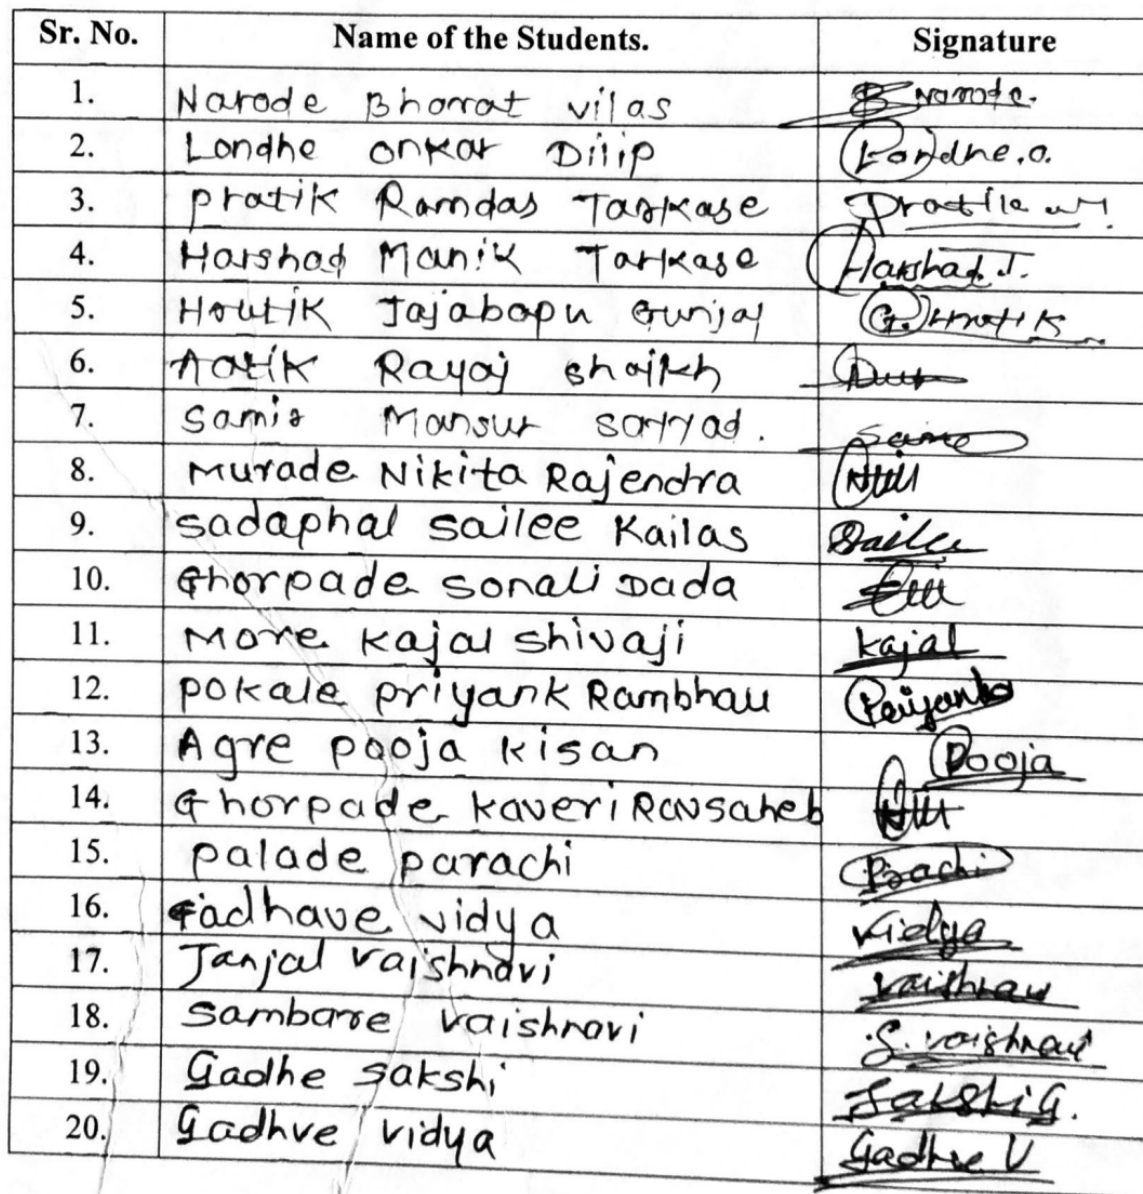 Sr. No. Name of the Students. Signature
1. Narode Bharat vilas B Narode.
2. Londhe onkar Dilip Londhe.o.
3. pratik Ramdas Tarkase Pratik
4. Harshad Manik Tarkase Harshad.T.
5. Hrutik Jajabapu Gunjal G. Hrutik
6. Aatik Rayaj shaikh
7. Samir Mansur sayyad.
8. Murade Nikita Rajendra
9. sadaphal sailee Kailas Sailee
10. Ghorpade sonali Dada
11. More kajal shivaji kajal
12. pokale priyank Rambhau Priyanka
13. Agre pooja kisan Pooja
14. Ghorpade kaveri Ravsaheb
15. palade parachi Prachi
16. Gadhave vidya Vidya
17. Janjal vaishnavi vaishnavi
18. Sambare vaishnavi S. vaishnavi
19. Gadhe sakshi Sakshi G.
20. Gadhve vidya Gadhve V